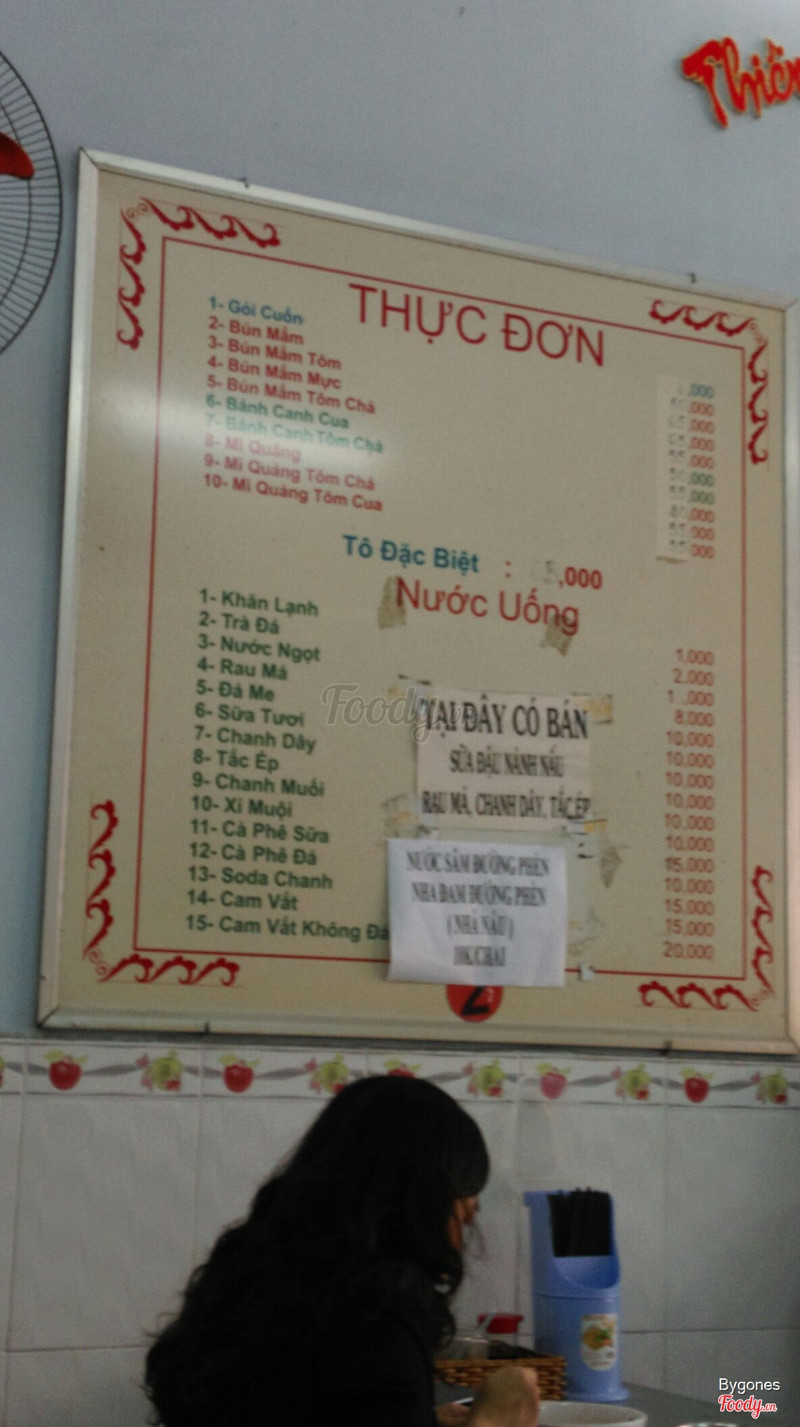 Thiên
THỰC ĐƠN
1- Gỏi Cuốn ,000
2- Bún Mắm ,000
3- Bún Mắm Tôm ,000
4- Bún Mắm Mực ,000
5- Bún Mắm Tôm Chả 55,000
6- Bánh Canh Cua 50,000
7- Bánh Canh Tôm Chả 55,000
8- Mì Quảng 40,000
9- Mì Quảng Tôm Chả 55,000
10- Mì Quảng Tôm Cua 55,000
Tô Đặc Biệt : 5,000
Nước Uống
1- Khăn Lạnh 1.000
2- Trà Đá 2.000
3- Nước Ngọt ,000
4- Rau Má 8,000
5- Đá Me 10,000
6- Sữa Tươi 10,000
7- Chanh Dây 10,000
8- Tắc Ép 10,000
9- Chanh Muối 10,000
10- Xí Muội 10.000
11- Cà Phê Sữa 15,000
12- Cà Phê Đá 10,000
13- Soda Chanh 15,000
14- Cam Vắt 15,000
15- Cam Vắt Không Đá 20,000
TẠI ĐÂY CÓ BÁN
SỮA ĐẬU NÀNH NẤU
RAU MÁ, CHANH DÂY, TẮC ÉP
NƯỚC SÂM ĐƯỜNG PHÈN
NHA ĐAM ĐƯỜNG PHÈN
( NHÀ NẤU )
10K/CHAI
2
Foody
Bygones
Foody.vn